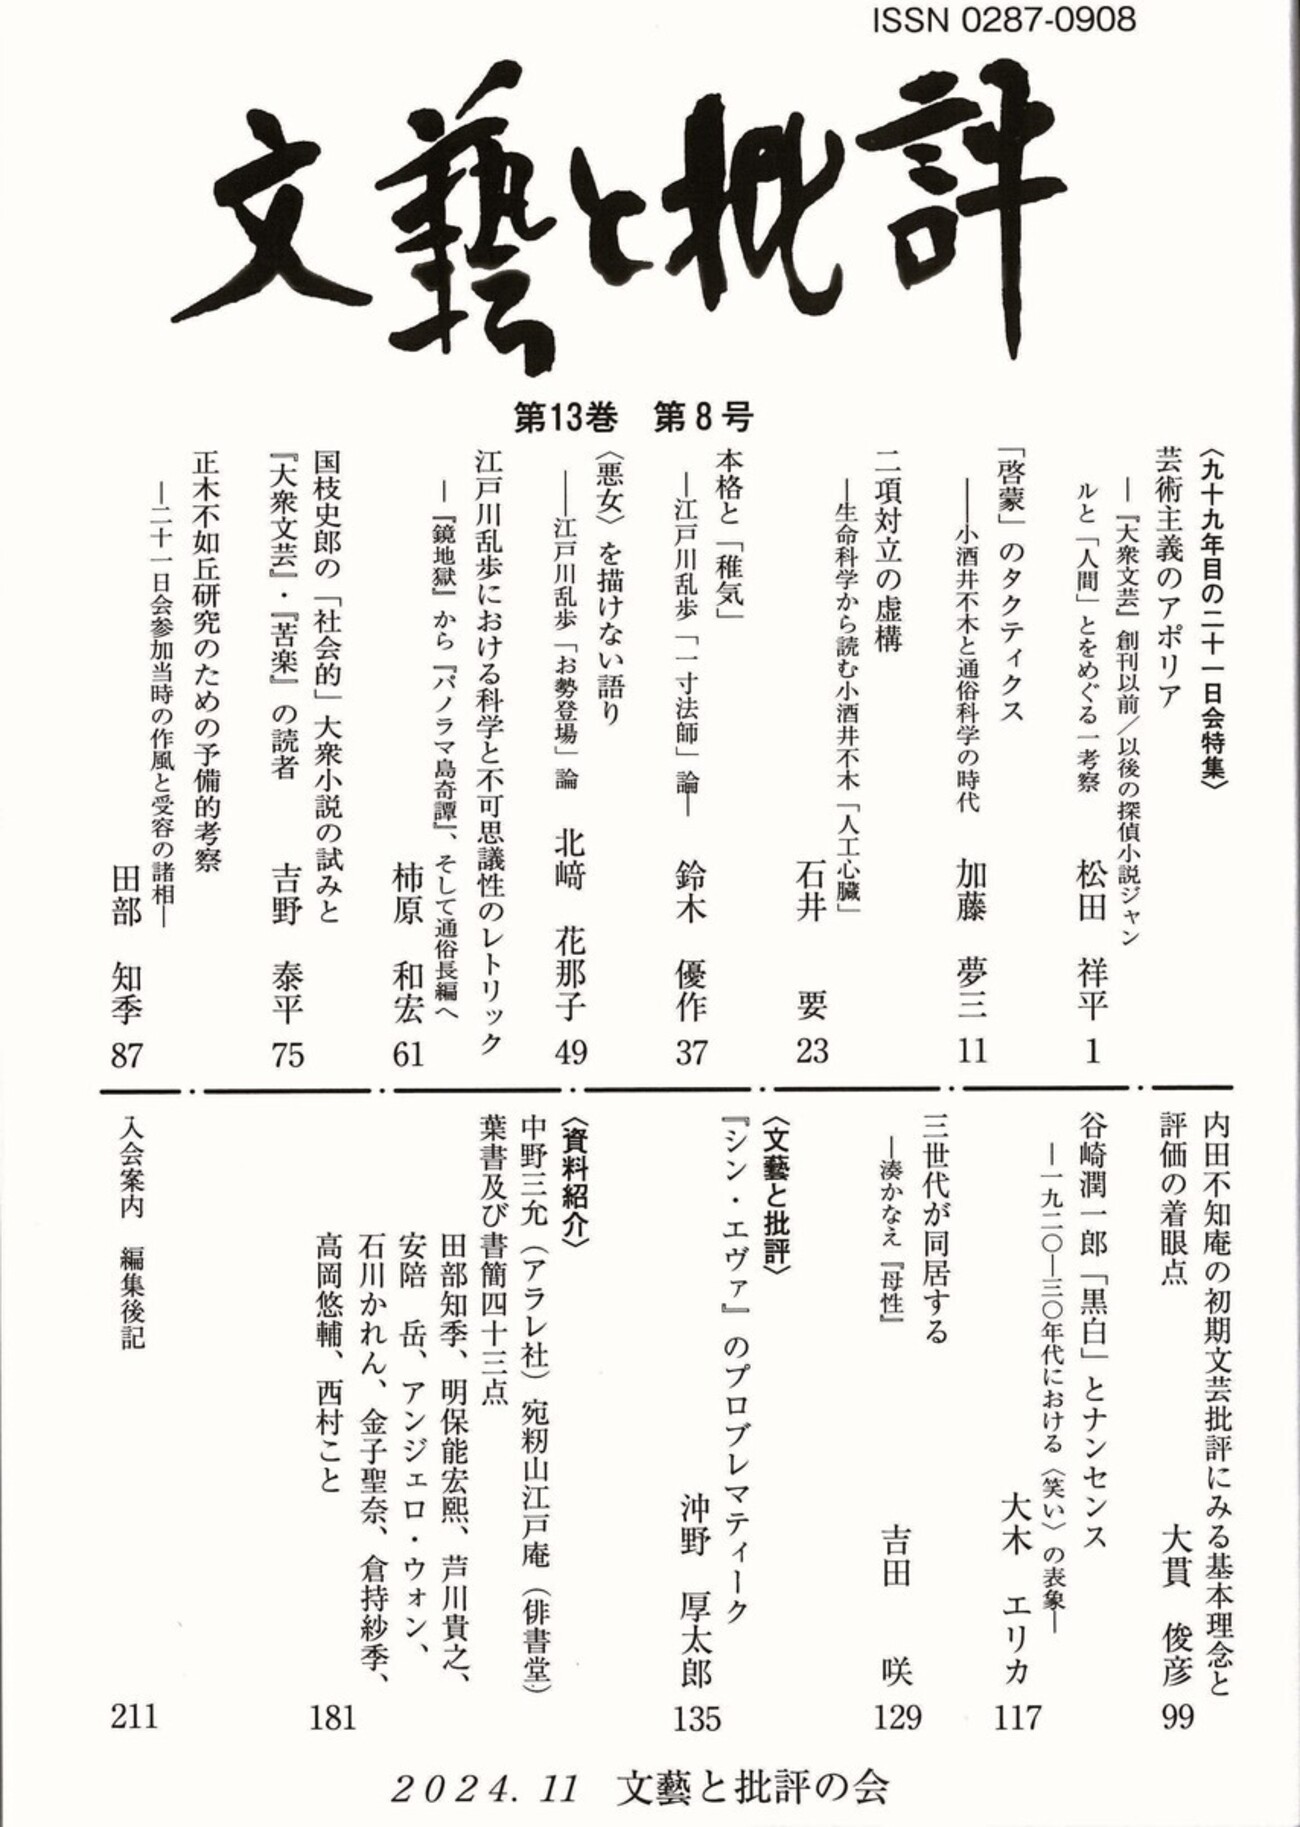 ISSN 0287-0908
文藝と批評
第13巻 第8号
〈九十九年目の二十一日会特集〉
芸術主義のアポリア
―『大衆文芸』創刊以前／以後の探偵小説ジャン
ルと「人間」とをめぐる一考察
松田 祥平 1
「啓蒙」のタクティクス
――小酒井不木と通俗科学の時代
加藤 夢三 11
二項対立の虚構
―生命科学から読む小酒井不木「人工心臓」
石井 要 23
本格と「稚気」
―江戸川乱歩「一寸法師」論―
鈴木 優作 37
〈悪女〉を描けない語り
――江戸川乱歩「お勢登場」論
北﨑 花那子 49
江戸川乱歩における科学と不可思議性のレトリック
―『鏡地獄』から『パノラマ島奇譚』、そして通俗長編へ
柿原 和宏 61
国枝史郎の「社会的」大衆小説の試みと
『大衆文芸』・『苦楽』の読者
吉野 泰平 75
正木不如丘研究のための予備的考察
―二十一日会参加当時の作風と受容の諸相―
田部 知季 87
内田不知庵の初期文芸批評にみる基本理念と
評価の着眼点
大貫 俊彦 99
谷崎潤一郎「黒白」とナンセンス
―一九二〇―三〇年代における〈笑い〉の表象―
大木 エリカ 117
三世代が同居する
―湊かなえ『母性』
吉田 咲 129
〈文藝と批評〉
『シン・エヴァ』のプロブレマティーク
沖野 厚太郎 135
〈資料紹介〉
中野三允（アラレ社）宛籾山江戸庵（俳書堂）
葉書及び書簡四十三点
田部知季、明保能宏熙、芦川貴之、
安陪 岳、アンジェロ・ウォン、
石川かれん、金子聖奈、倉持紗季、
高岡悠輔、西村こと
181
入会案内 編集後記
211
2024.11 文藝と批評の会